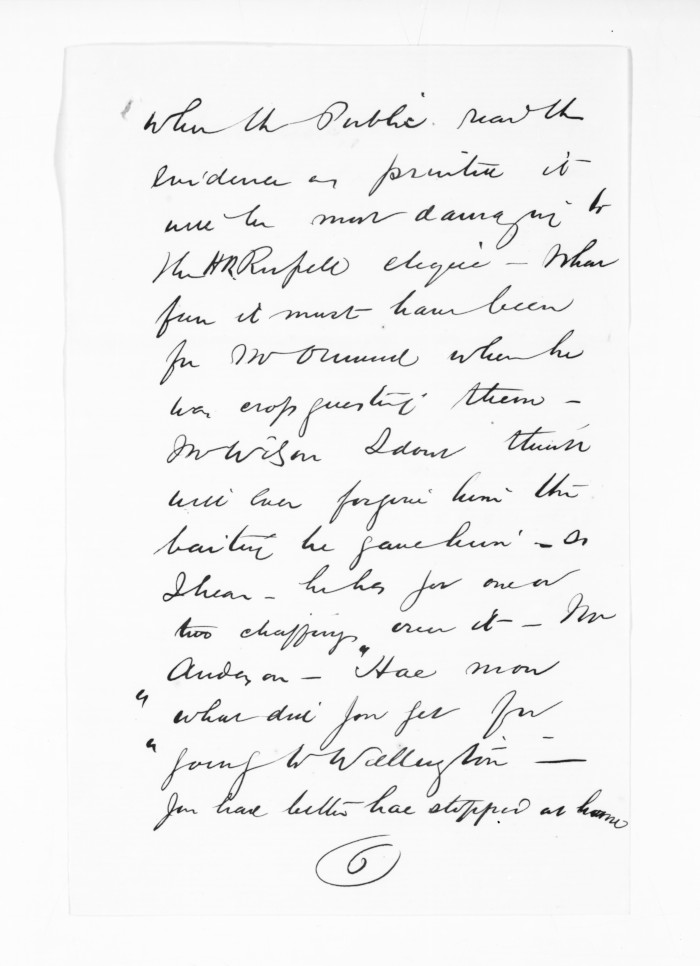 when the Public read the
evidence as printed it
will be most damaging to
the H.R. Russell clique - What
fun it must have been
for Mr Ormond when he
was cross questing them -
Mr Wilson I dont think
will ever forgive him the
baiting he gave him - as
I hear - he has got one or
two chaffings over it - Mr
Anderson - "Hae mon
"what did you get for
"going to Wellington" -
you had better hae stopped at home
6